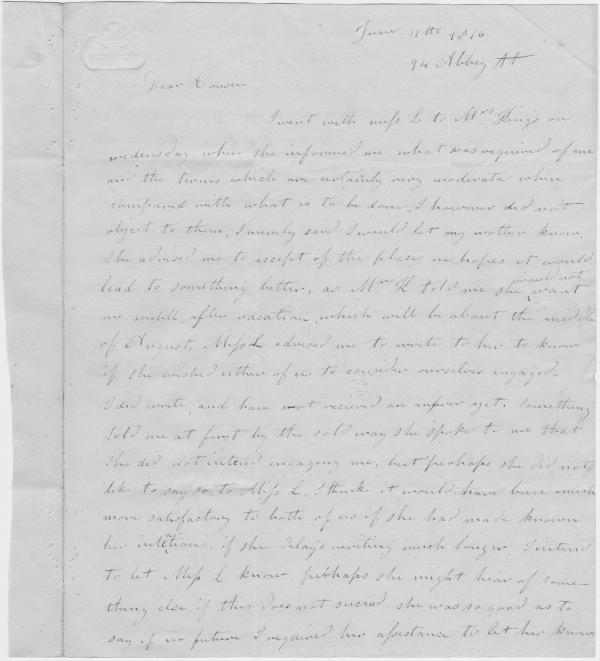 June 11th 1816
94 Abbey St
Dear Cousin
I went with miss L to Mrs Kings on
wedensday when she informed me what was required of me
and the terms which are certainly very moderate when
compared with what is to be done, I however did not
object to them, I merely said I would let my mother know.
She advised me to accept of the place in hopes it would
lead to something better, as Mrs K told me she would not want
me untill after vacation, which will be about the middle
of August, Miss L advised me to write to her to know
if she wished either of us to consider ourselves engaged.
I did write, and have not recieved an answer yet. something
told me at first by the cold way she spoke to me that
she did not intend engaging me, but perhaps she did not
like to say so, to Miss L, I think it would have been much
more satisfactory to both of us if she had made known
her intetions, if she delays writing much longer, I intend
to let Miss L know. perhaps she might hear of some-
thing else if this does not succed. she was so good as to
say if in future I required her assistance to let her know